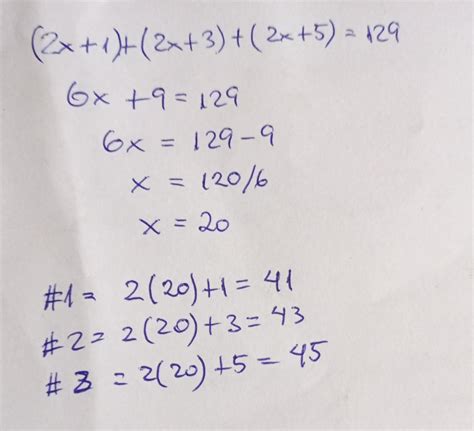 (2x+1)+(2x+3)+(2x+5)=129
6x+9=129
6x = 129-9
x = 120/6
x = 20
#1= 2(20)+1=41
#2= 2(20)+3=43
#3 =2(20)+5=45